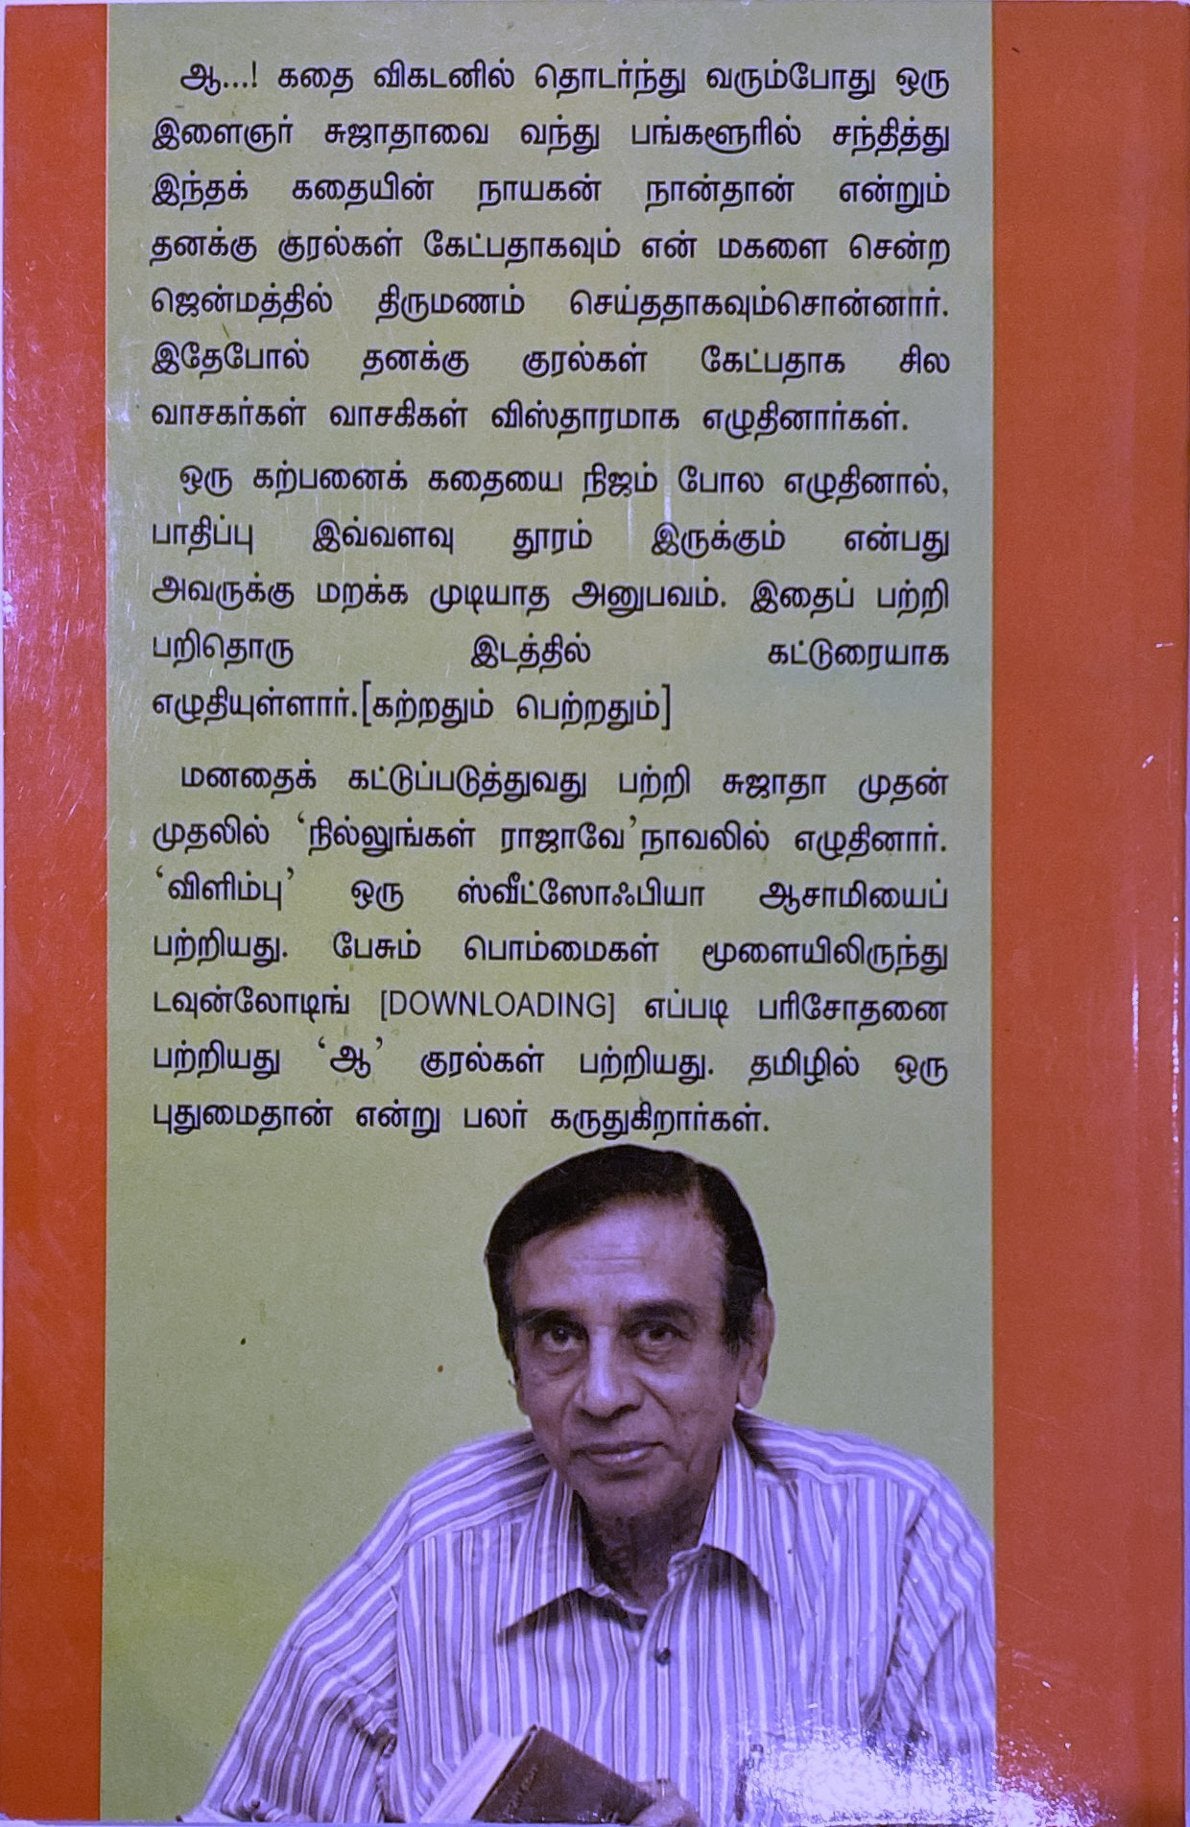 ஆ...! கதை விகடனில் தொடர்ந்து வரும்போது ஒரு
இளைஞர் சுஜாதாவை வந்து பங்களூரில் சந்தித்து
இந்தக் கதையின் நாயகன் நான்தான் என்றும்
தனக்கு குரல்கள் கேட்பதாகவும் என் மகளை சென்ற
ஜென்மத்தில் திருமணம் செய்ததாகவும்சொன்னார்.
இதேபோல் தனக்கு குரல்கள் கேட்பதாக சில
வாசகர்கள் வாசகிகள் விஸ்தாரமாக எழுதினார்கள்.
ஒரு கற்பனைக் கதையை நிஜம் போல எழுதினால்,
பாதிப்பு இவ்வளவு தூரம் இருக்கும் என்பது
அவருக்கு மறக்க முடியாத அனுபவம். இதைப் பற்றி
பறிதொரு இடத்தில் கட்டுரையாக
எழுதியுள்ளார்.[கற்றதும் பெற்றதும்]
மனதைக் கட்டுப்படுத்துவது பற்றி சுஜாதா முதன்
முதலில் ‘நில்லுங்கள் ராஜாவே’நாவலில் எழுதினார்.
‘விளிம்பு’ ஒரு ஸ்வீட்ஸோஃபியா ஆசாமியைப்
பற்றியது. பேசும் பொம்மைகள் மூளையிலிருந்து
டவுன்லோடிங் [DOWNLOADING] எப்படி பரிசோதனை
பற்றியது ‘ஆ’ குரல்கள் பற்றியது. தமிழில் ஒரு
புதுமைதான் என்று பலர் கருதுகிறார்கள்.